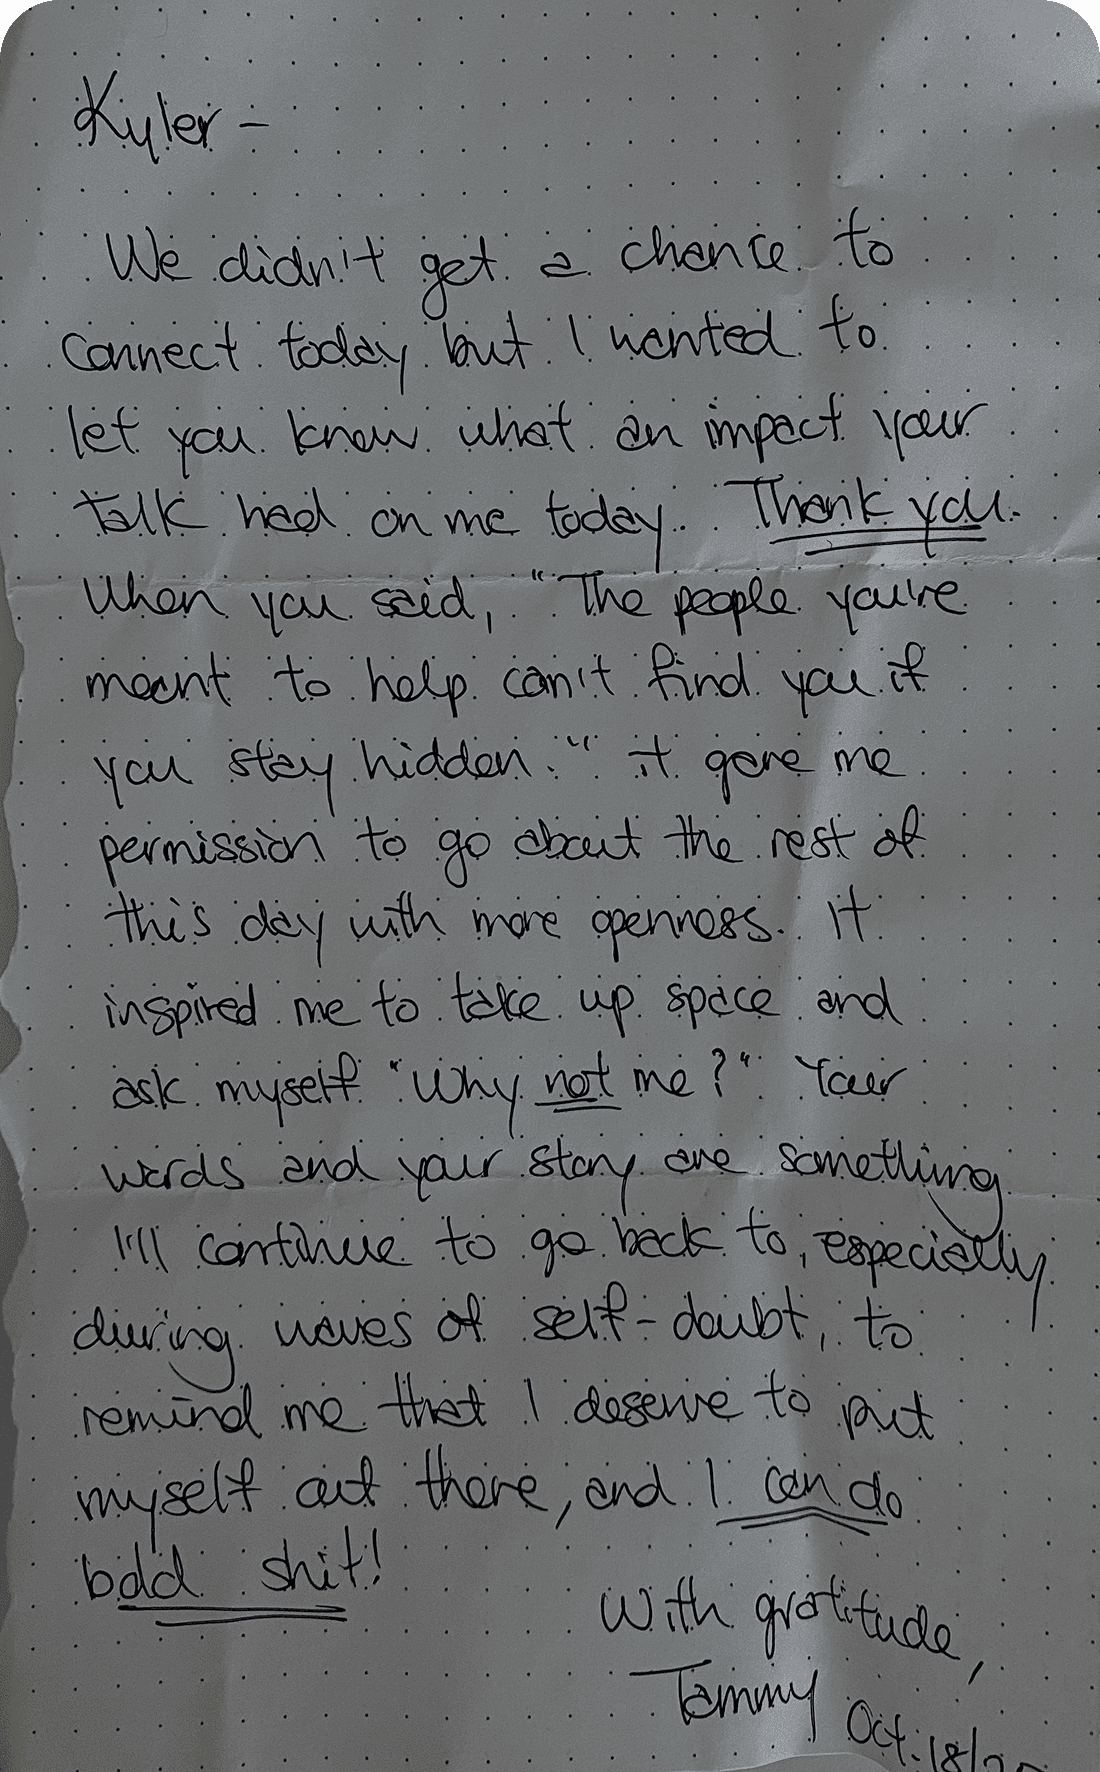 Kyler -
We didn't get a chance to
connect today but I wanted to
let you know what an impact your
talk had on me today. Thank you.
When you said, "The people you're
meant to help can't find you if
you stay hidden." it gave me
permission to go about the rest of
this day with more openness. It
inspired me to take up space and
ask myself "Why not me?" Your
words and your story are something
I'll continue to go back to, especially
during waves of self-doubt, to
remind me that I deserve to put
myself out there, and I can do
bold shit!
With gratitude,
Tammy
Oct. 18/